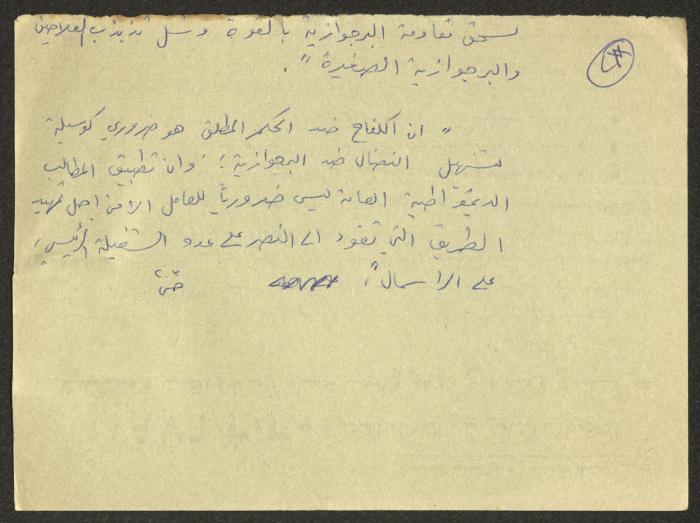 لسحق مقاومة البرجوازية بالقوة وشل تذبذب الفلاحين
والبرجوازية الصغيرة".
"ان الكفاح ضد الحكم المطلق هو ضروري كوسيلة
لتسهيل النضال ضد البرجوازية؛ وان تطبيق المطالب
الديمقراطية العامة ليس ضرورياً للعامل الا من اجل تمهيد
الطريق التي تقود الى النصر على عدو الشغيلة الرئيسي،
على الرأسمال"،